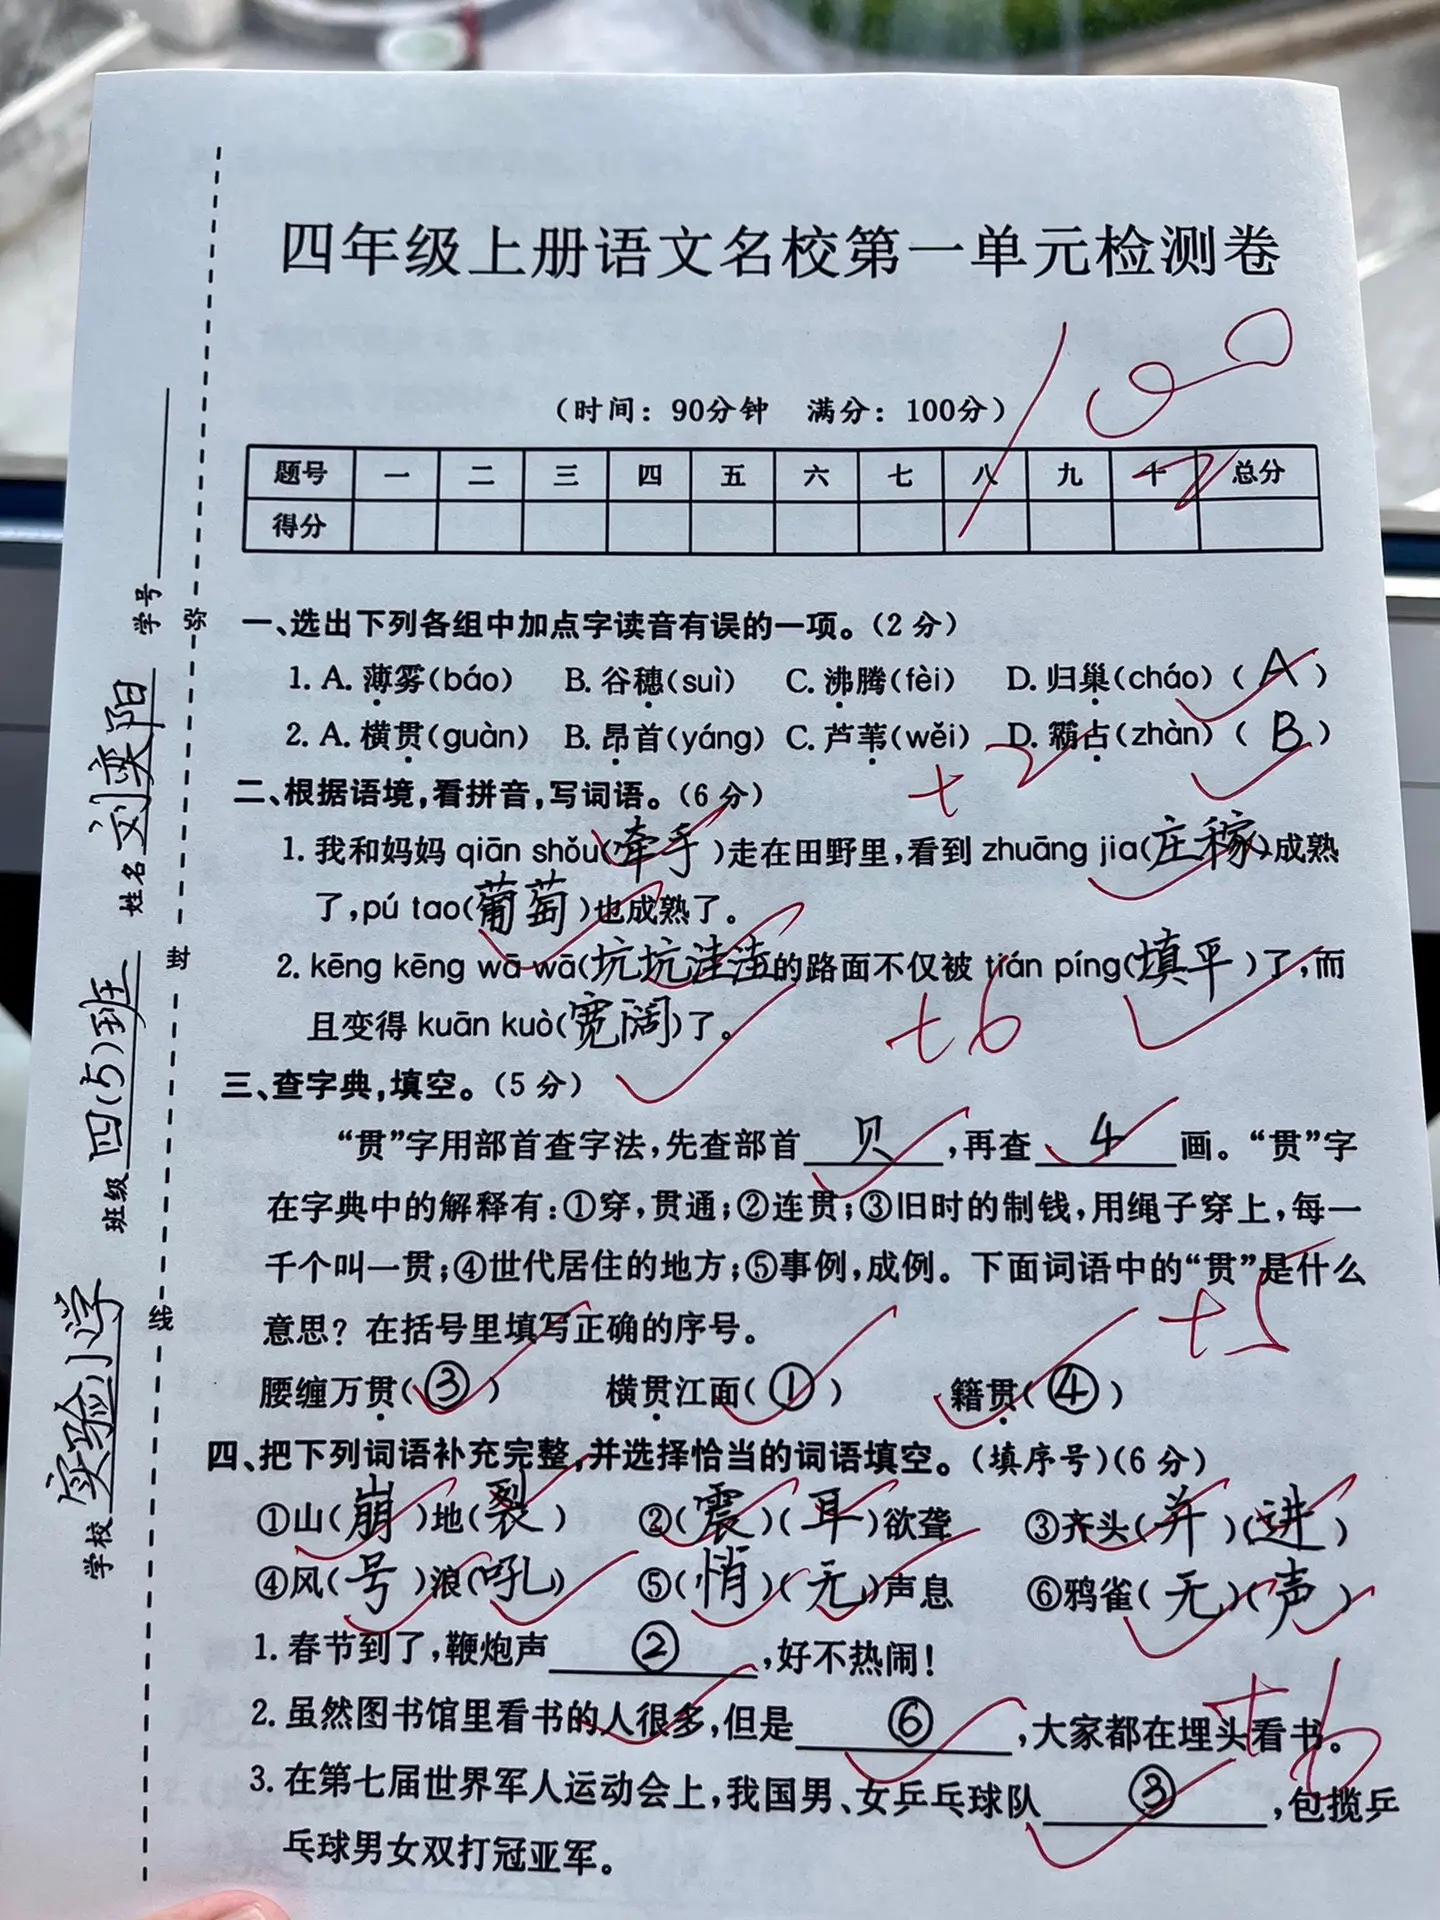 四年级上册语文名校第一单元检测卷
100
（时间：90分钟 满分：100分）
题号 一 二 三 四 五 六 七 八 九 十 总分
得分
学校 实验小学 班级 四(5)班 姓名 刘奕阳 学号
弥 封 线
一、选出下列各组中加点字读音有误的一项。（2分）
1. A. 薄雾(báo) B. 谷穗(suì) C. 沸腾(fèi) D. 归巢(cháo) ( A )
2. A. 横贯(guàn) B. 昂首(yáng) C. 芦苇(wěi) D. 霸占(zhàn) ( B )
+2
二、根据语境，看拼音，写词语。（6分）
1. 我和妈妈 qiān shǒu(牵手)走在田野里，看到 zhuāng jia(庄稼)成熟
了，pú tao(葡萄)也成熟了。
2. kēng kēng wā wā(坑坑洼洼的路面不仅被 tián píng(填平)了，而
且变得 kuān kuò(宽阔)了。
+6
三、查字典，填空。（5分）
“贯”字用部首查字法，先查部首 贝 ，再查 4 画。“贯”字
在字典中的解释有：①穿，贯通；②连贯；③旧时的制钱，用绳子穿上，每一
千个叫一贯；④世代居住的地方；⑤事例，成例。下面词语中的“贯”是什么
意思？在括号里填写正确的序号。
+5
腰缠万贯( ③ ) 横贯江面( ① ) 籍贯( ④ )
四、把下列词语补充完整，并选择恰当的词语填空。（填序号）（6分）
①山(崩)地(裂) ②(震)(耳)欲聋 ③齐头(并)(进)
④风(号)浪(吼) ⑤(悄)(无)声息 ⑥鸦雀(无)(声)
1. 春节到了，鞭炮声 ② ，好不热闹！
2. 虽然图书馆里看书的人很多，但是 ⑥ ，大家都在埋头看书。
+6
3. 在第七届世界军人运动会上，我国男、女乒乓球队 ③ ，包揽乒
乓球男女双打冠亚军。